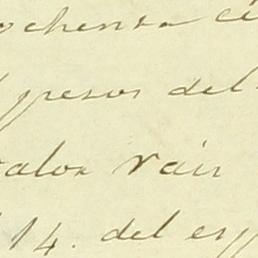 ochenta ci
pesos del
valor rair
14. del esp